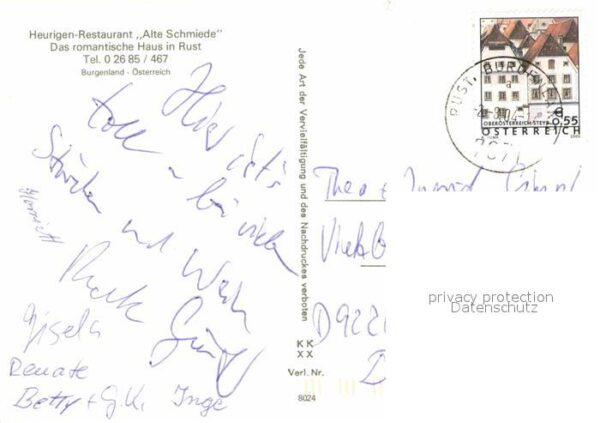 Heurigen-Restaurant „Alte Schmiede"
Das romantische Haus in Rust
Tel. 0 26 85 / 467
Burgenland - Österreich
Hier ist's
toll - bei vielen
Störchen und Wein
Gisela
Renate
Betty + G.K. Inge
Jede Art der Vervielfältigung und des Nachdruckes verboten
KK
XX
Verl. Nr.
8024
OBERÖSTERREICH-STEYR
€ 0,55
ÖSTERREICH
RUST, BURGENL
7071
Theo
privacy protection
Datenschutz